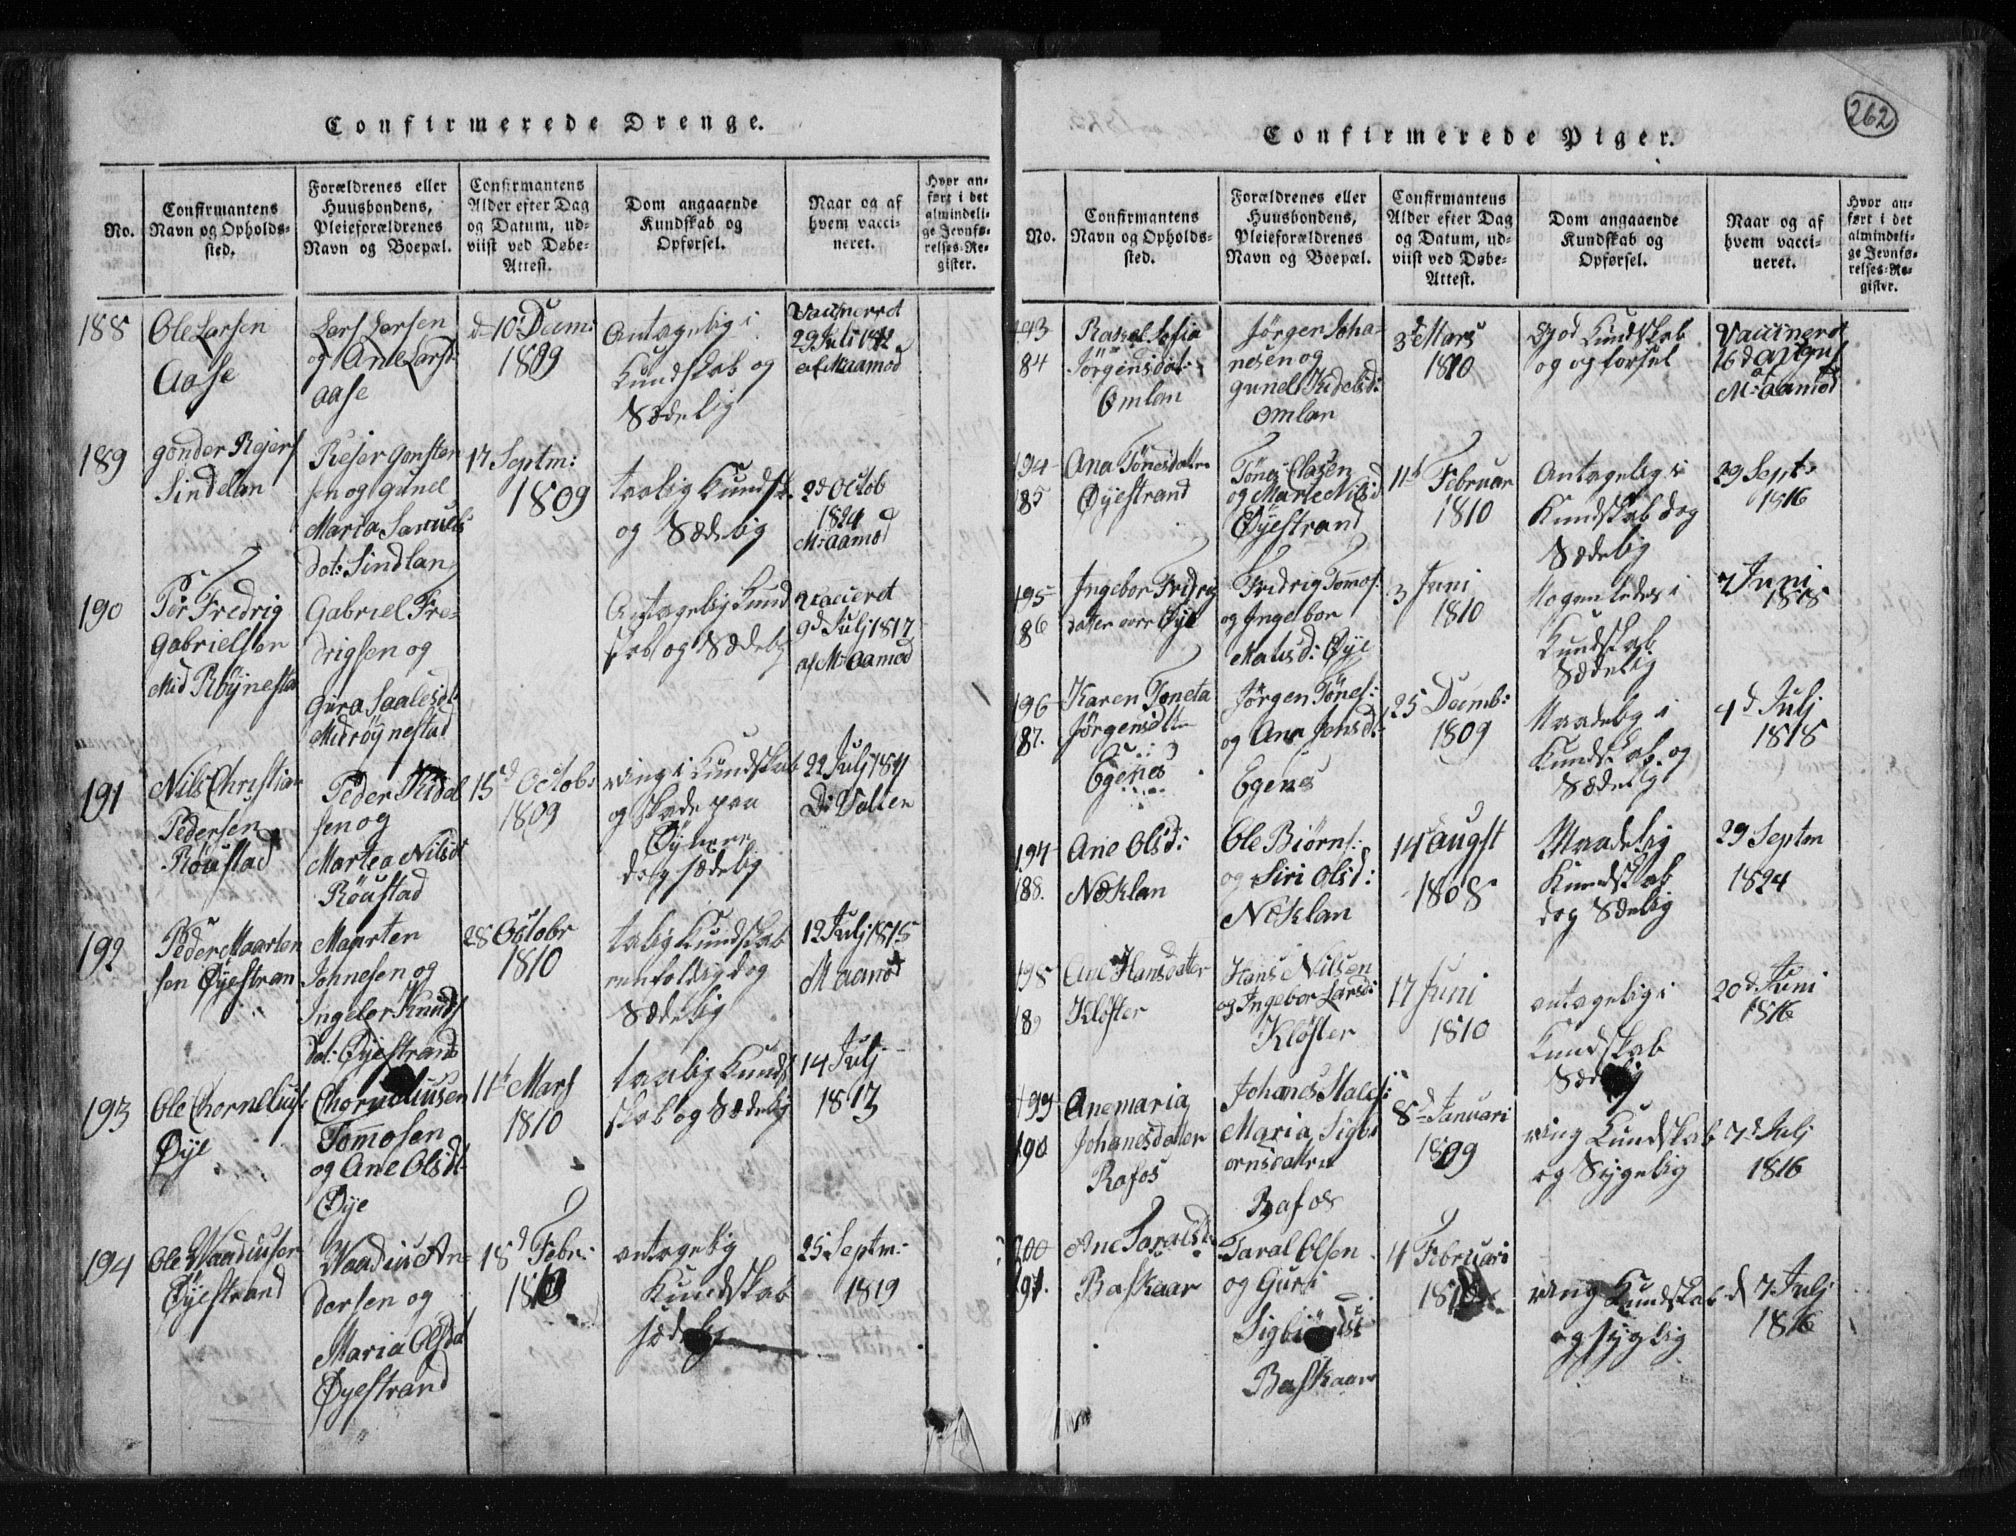 262
Confirmerede Drenge.
No.
Confirmantens
Navn og Opholds-
sted.
Forældrenes eller
Huusbondens,
Pleieforældrenes
Navn og Boepæl.
Confirmantens
Alder efter Dag
og Datum, ud-
viist ved Døbe-
Attest.
Dom angaaende
Kundskab og
Opførsel.
Naar og af
hvem vacci-
neret.
Hvor an-
ført i det
almindeli-
ge Jevnfø-
relses-Re-
gister.
188
Ole Larsen
Aase
Lars Larsen
og Ane Larsd
Aase
d 10 Decm:
1809
Antagelig i
Kundskab og
Sædelig
29 Juli 1812
af M: Aamod
189
gonder Rejers
Sindelan
Rejer Gonsten
sen og Gunel
Maria Samuels
dot: Sindlan
17 Septm:
1809
taalig Kundsk.
og Sædelig
2d Octob
1824
M: Aamod
190
Per Fredrig
Gabrielsen
Mid Røynestad
Gabriel Fre-
drigsen og
Gura Saalesdt
Midrøynestad
Antagelig Kund
skab og Sædelig
9d Julj 1817
af M: Aamod
191
Nils Christian
Pedersen
Røustad
Peder Kidel
sen og
Martea Nilsd
Røustad
15d Octob:
1809
ring i Kundskab
og skade paa
Øynene
dog sædelig
22 Julj
D: Salten
192
Peder Maarten
sen Øyestran
Maarten
Johnesen og
Ingelor Knuds
dot: Øyestrand
28 Octobr
1810
talig Kundskab
eenfoldig dog
Sædelig
12 Julj 1815
M Aamod
193
Ole Chornelius:
Øye
Chorneliusen
Tomosen
og Ane Olsdt
Øye
11te Mars
1810
taalig Kund
skab og Sædelig
14 Julj
1817
194
Ole Vaadiusen
Øyestrand
Vaadius An-
dersen og
Maria Olsdat
Øyestrand
18d Febr:
1810
antagelig
Kundskab
sædelig
25 Septm:
1819
Confirmerede Piger.
No.
Confirmantens
Navn og Opholds-
sted.
Forældrenes eller
Huusbondens,
Pleieforældrenes
Navn og Boepæl.
Confirmantens
Alder efter Dag
og Datum, ud-
viist ved Døbe-
Attest.
Dom angaaende
Kundskab og
Opførsel.
Naar og af
hvem vacci-
neret.
Hvor an-
ført i det
almindeli-
ge Jevnfø-
relses-Re-
gister.
193
184
Rakel Sofia
Jörgensdat:
Omlan
Jörgen Joha-
nesen og
gunel Kidelsd:
Omlan
3d Mars
1810
god Kundskab
og opførsel
16d August
M: Aamod
194
185
Ana Tönesdatter
Öyestrand
Töne Clasen
og Marte Nilsd
Øyestrand
11te Februar
1810
Antagelig i
Kundskab dog
Sædelig
29 Sept:
1816
195
186
Ingebor Fridrig
datter Øye
Fridrig Tomos:
og Ingelbor
Matisd: Øye
3 Juni
1810
Nogenledes i
Kundskab
Sædelig
7 Juni
1818
196
187.
Karen Toneta
Jørgensdtr
Egenes
Jørgen Tönes:
og Ana Jonsdt
Egenes
25 Decemb:
1809
Maadelig i
Kundskab og
Sædelig
4d Julj
1818
197
188.
Ane Olsd:
Neklan
Ole Biörns:
og Siri Olsd:
Neklan
14 Augst
1808
Maadelig
Kundskab
dog Sædelig
29 Septm
1824
198
189
Ane Hansdater
Klöster
Hans Nilsen
og Ingebor Larsd:
Klöster
17 Juni
1810
antagelig i
Kundskab
Sædelig
20d Juni
1816
199
190
Anemaria
Johanesdatter
Rafos
Johanes
Maria Sigbi
ornsdatter
Rafos
8d Januari
1809
ring Kundskab
og Sygelig
7d Julj
1816
200
191.
Ane Taralsd:
Baskaar
Taral Olsen
og Guri
Baskaar
4 Februari
1810
ring Kundskab
og syglig
d 7 Julj
1816